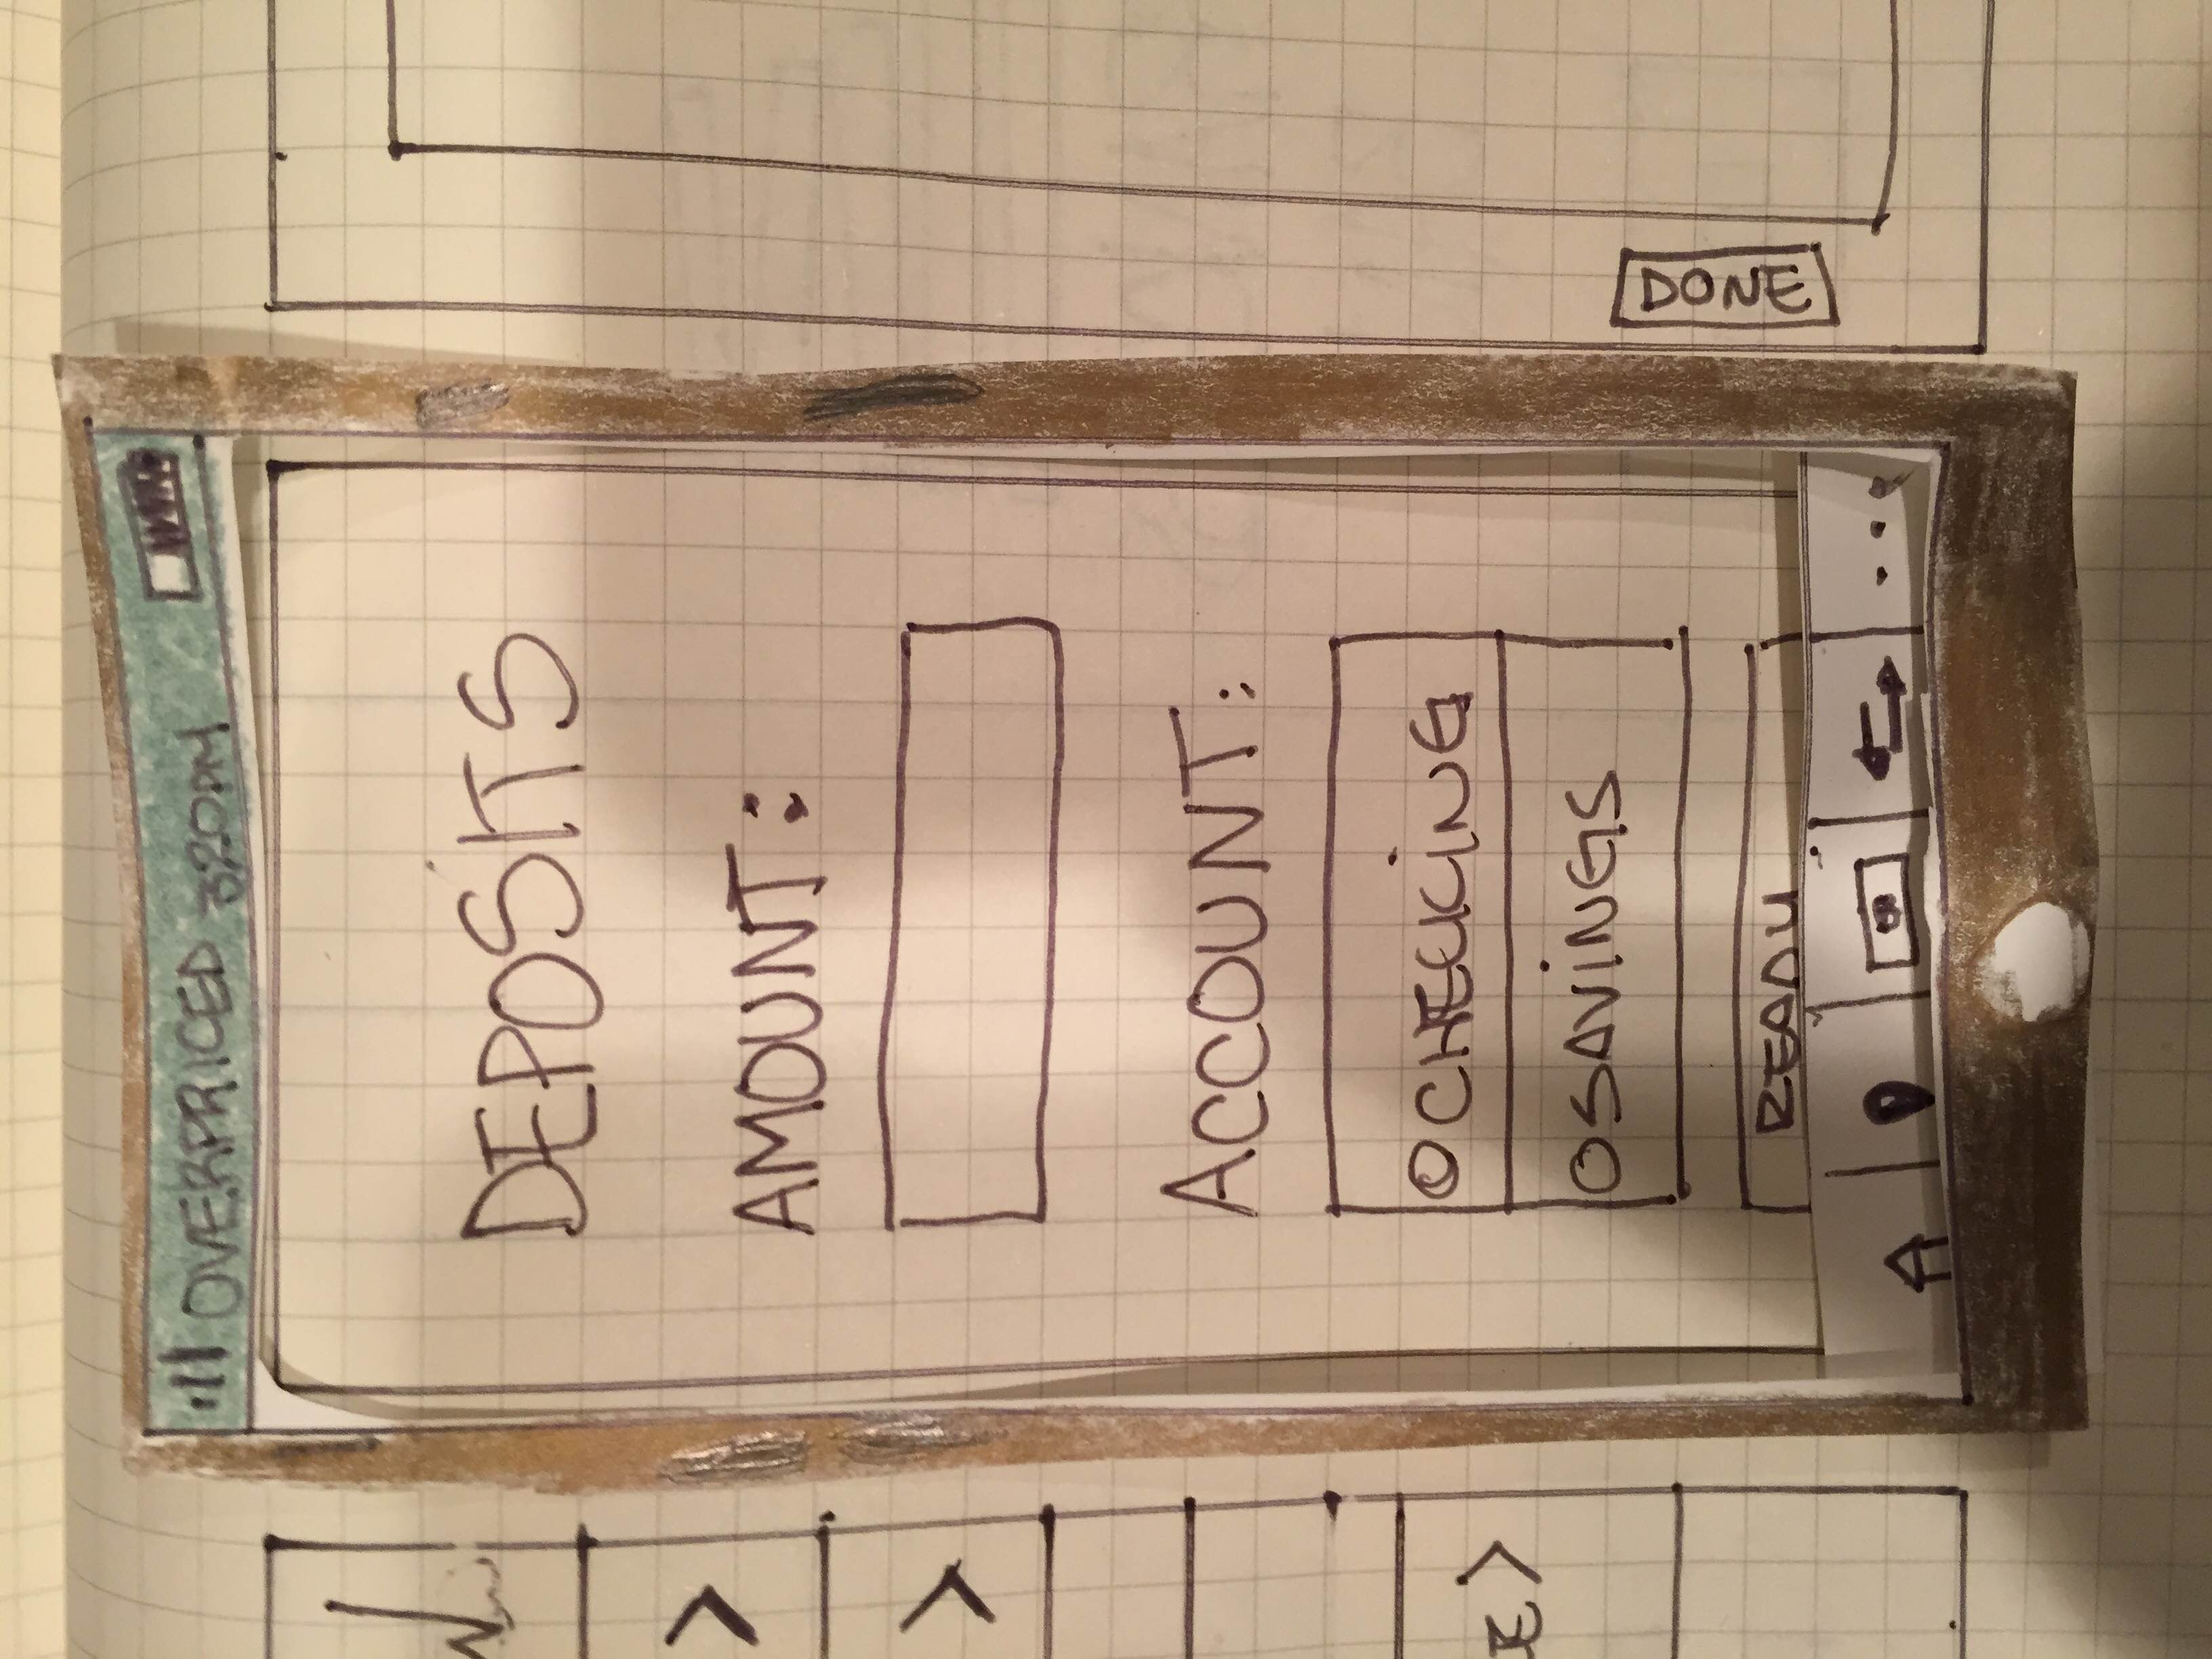 OVERPRICED 3:20PM
DEPOSITS
AMOUNT:
ACCOUNT:
CHECKING
SAVINGS
READY
DONE